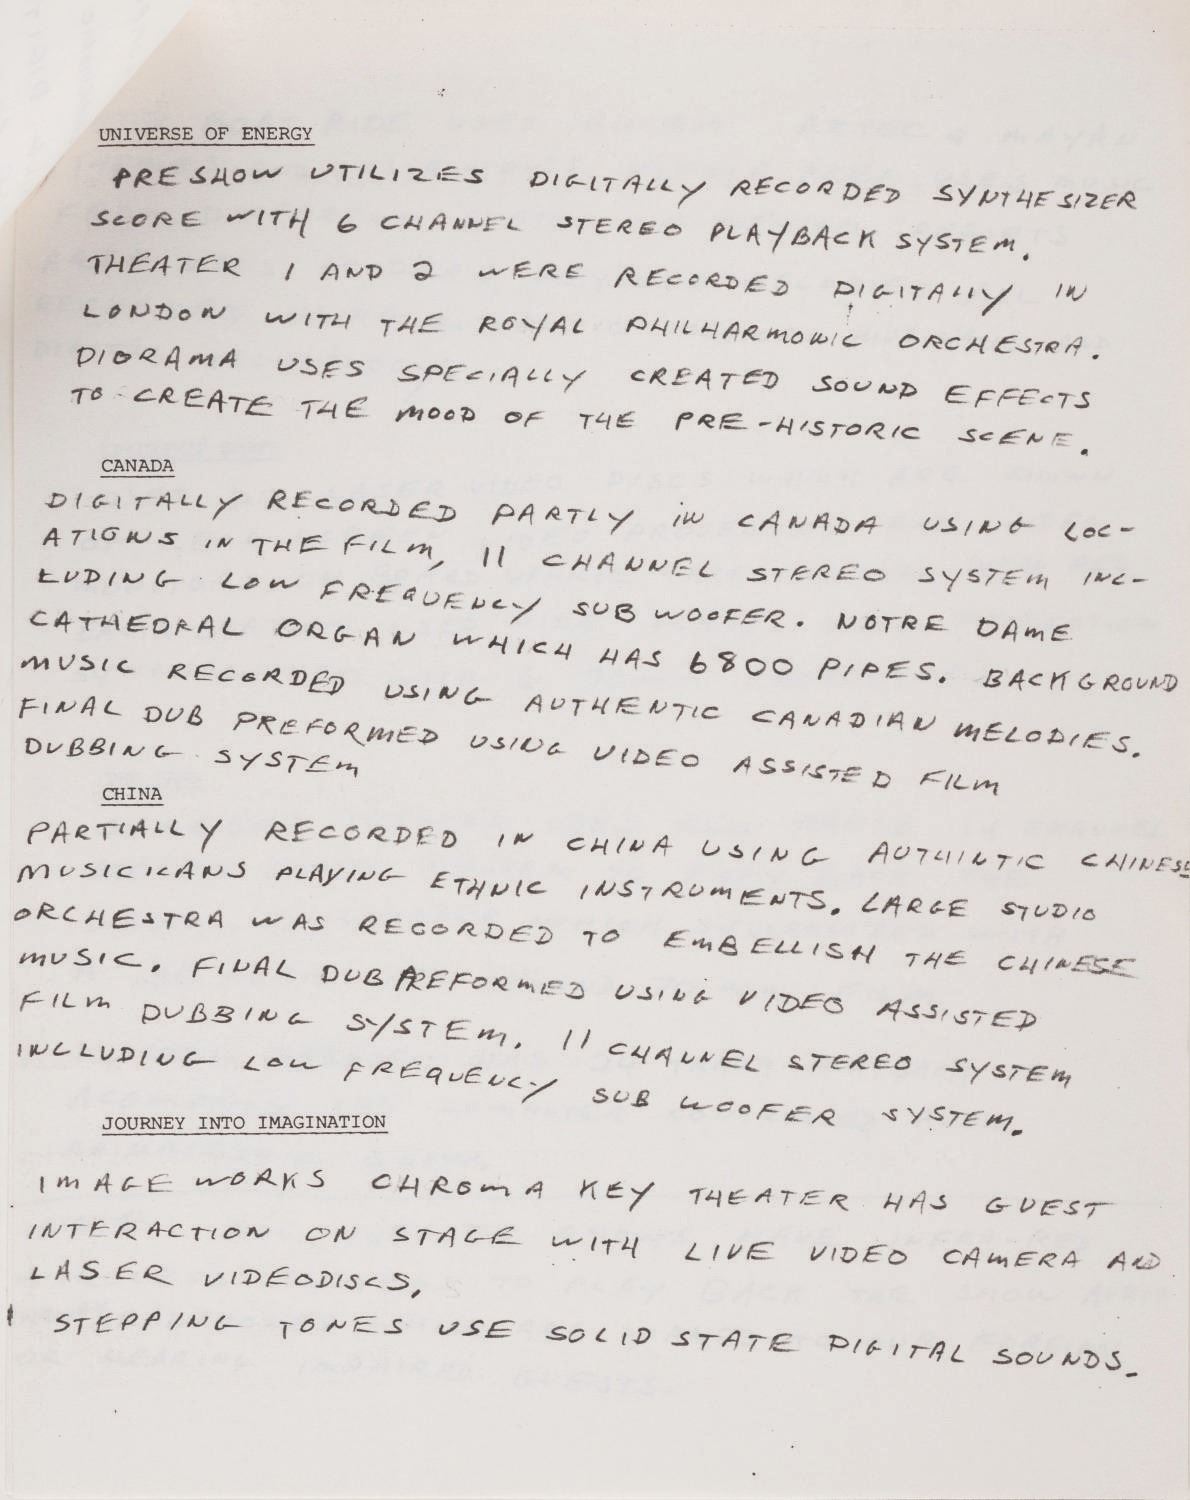 UNIVERSE OF ENERGY
PRESHOW UTILIZES DIGITALLY RECORDED SYNTHESIZER
SCORE WITH 6 CHANNEL STEREO PLAYBACK SYSTEM.
THEATER 1 AND 2 WERE RECORDED DIGITALLY IN
LONDON WITH THE ROYAL PHILHARMONIC ORCHESTRA.
DIORAMA USES SPECIALLY CREATED SOUND EFFECTS
TO CREATE THE MOOD OF THE PRE-HISTORIC SCENE.
CANADA
DIGITALLY RECORDED PARTLY IN CANADA USING LOC-
ATIONS IN THE FILM, 11 CHANNEL STEREO SYSTEM INC-
LUDING LOW FREQUENCY SUB WOOFER. NOTRE DAME
CATHEDRAL ORGAN WHICH HAS 6800 PIPES. BACKGROUND
MUSIC RECORDED USING AUTHENTIC CANADIAN MELODIES.
FINAL DUB PREFORMED USING VIDEO ASSISTED FILM
DUBBING SYSTEM
CHINA
PARTIALLY RECORDED IN CHINA USING AUTHINTIC CHINESE
MUSICICANS PLAYING ETHNIC INSTRUMENTS. LARGE STUDIO
ORCHESTRA WAS RECORDED TO EMBELLISH THE CHINESE
MUSIC. FINAL DUB PREFORMED USING VIDEO ASSISTED
FILM DUBBING SYSTEM. 11 CHANNEL STEREO SYSTEM
INCLUDING LOW FREQUENCY SUB WOOFER SYSTEM.
JOURNEY INTO IMAGINATION
IMAGE WORKS CHROMA KEY THEATER HAS GUEST
INTERACTION ON STAGE WITH LIVE VIDEO CAMERA AND
LASER VIDEODISCS.
STEPPING TONES USE SOLID STATE DIGITAL SOUNDS.